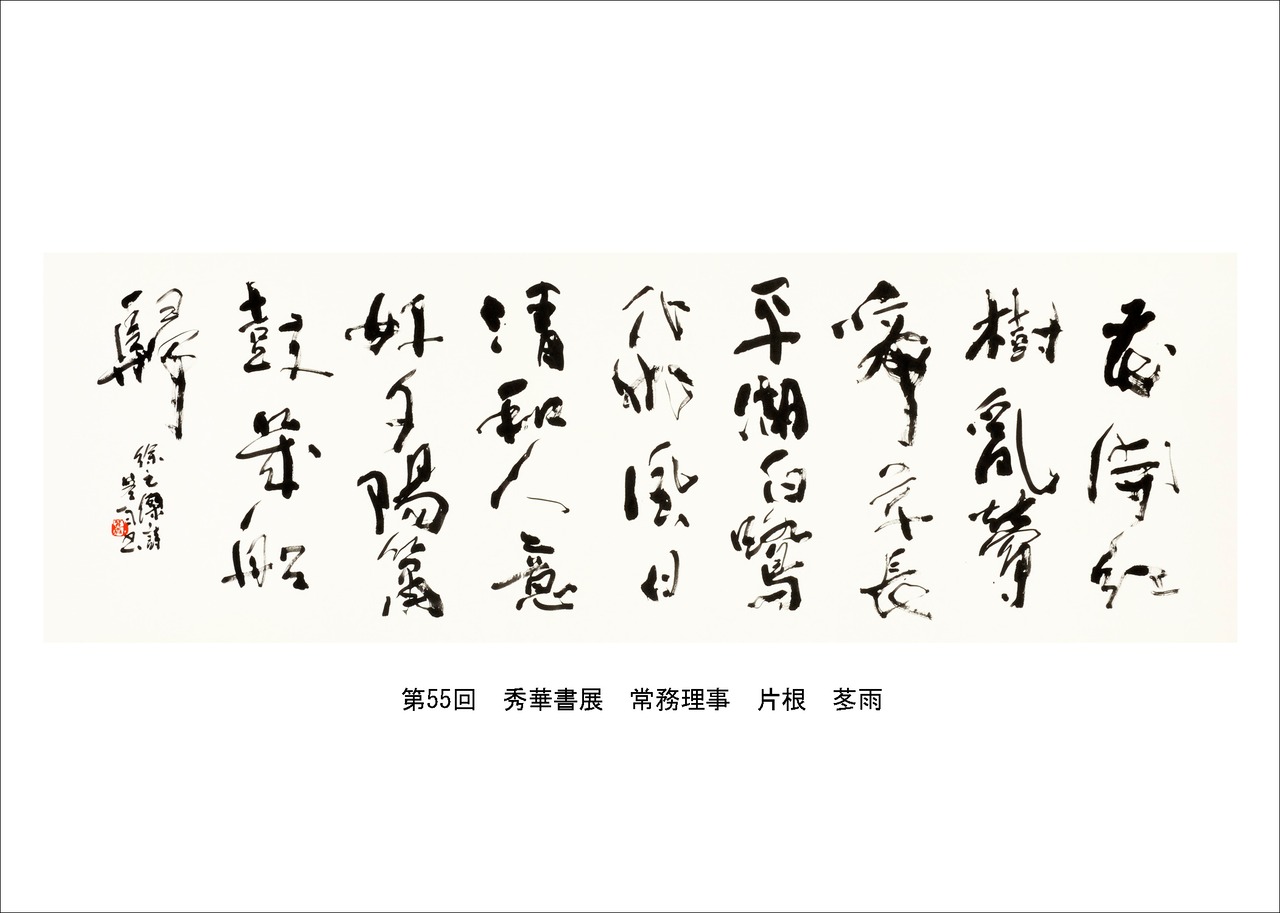 花開紅
樹亂鶯
啼草長
平湖白鷺
飛風日
清和人意
好夕陽簫
鼓幾船
歸
徐元傑詩
茎雨書
第55回　秀華書展　常務理事　片根　茎雨